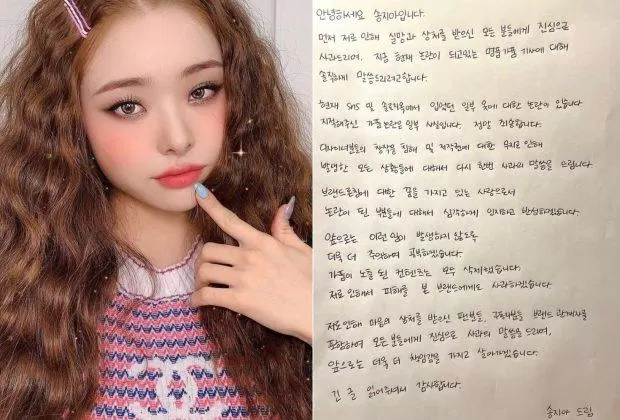 안녕하세요 송지아입니다.
먼저 저로 인해 실망과 상처를 받으신 모든 분들에게 진심으로
사과드리며, 지금 현재 논란이 되고있는 명품가품 기사에 대해
솔직하게 말씀드리려고합니다.
현재 SNS 및 솔로지옥에서 입었던 일부 옷에 대한 논란이 있습니다
지적해주신 가품논란은 일부 사실입니다. 정말 죄송합니다.
디자이너분들의 창작물 침해 및 저작권에 대한 무지로 인해
발생한 모든 상황들에 대해서 다시 한번 사과의 말씀을 드립니다.
브랜드론칭에 대한 꿈을 가지고 있는 사람으로서
논란이 된 부분들에 대해서 심각하게 인지하고 반성하겠습니다.
앞으로는 이런 일이 발생하지 않도록
더욱 더 주의하며 공부하겠습니다.
가품이 노출 된 컨텐츠는 모두 삭제했습니다.
저로 인해서 피해를 본 브랜드에게도 사과하겠습니다.
저로 인해 마음의 상처를 받으신 팬분들, 구독자분들, 브랜드 관계자를
포함하여 모든분들에게 진심으로 사과의 말씀을 드리며,
앞으로는 더욱 더 책임감을 가지고 살아가겠습니다.
긴 글 읽어주셔서 감사합니다.
송지아 드림